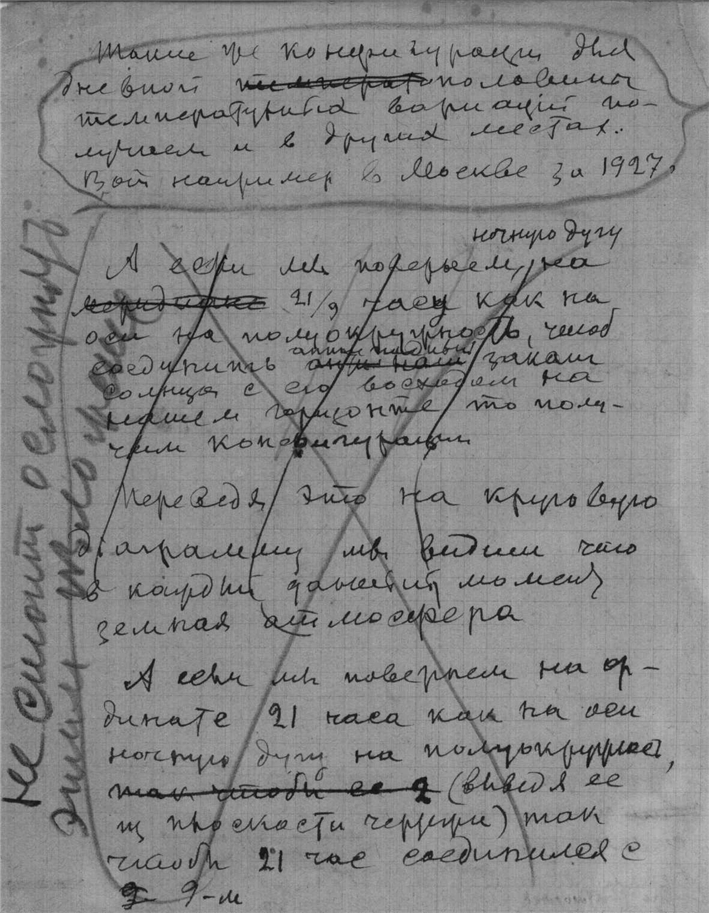 Такие же конфигурации для
дневной температ половины
температурных вариаций по-
лучаем и в других местах.
Вот например в Москве за 1927.
ночную дугу
А если мы повернем на
меридиане 21/9 часу как на
оси на полуокружность, чтоб
соединить закат
солнца с его восходом на
нашем горизонте то полу-
чим конфигурации
Переведя это на круговую
диаграмму мы видим что
в каждый данный момент
земная атмосфера
А если мы повернем на ор-
динате 21 часа как на оси
ночную дугу на полуокружност,
так чтобы ее 2 (выведя ее
из плоскости чертежа) так
чтобы 21 час соединился с
9 9-м
Не стоит осложнять
этим изложение